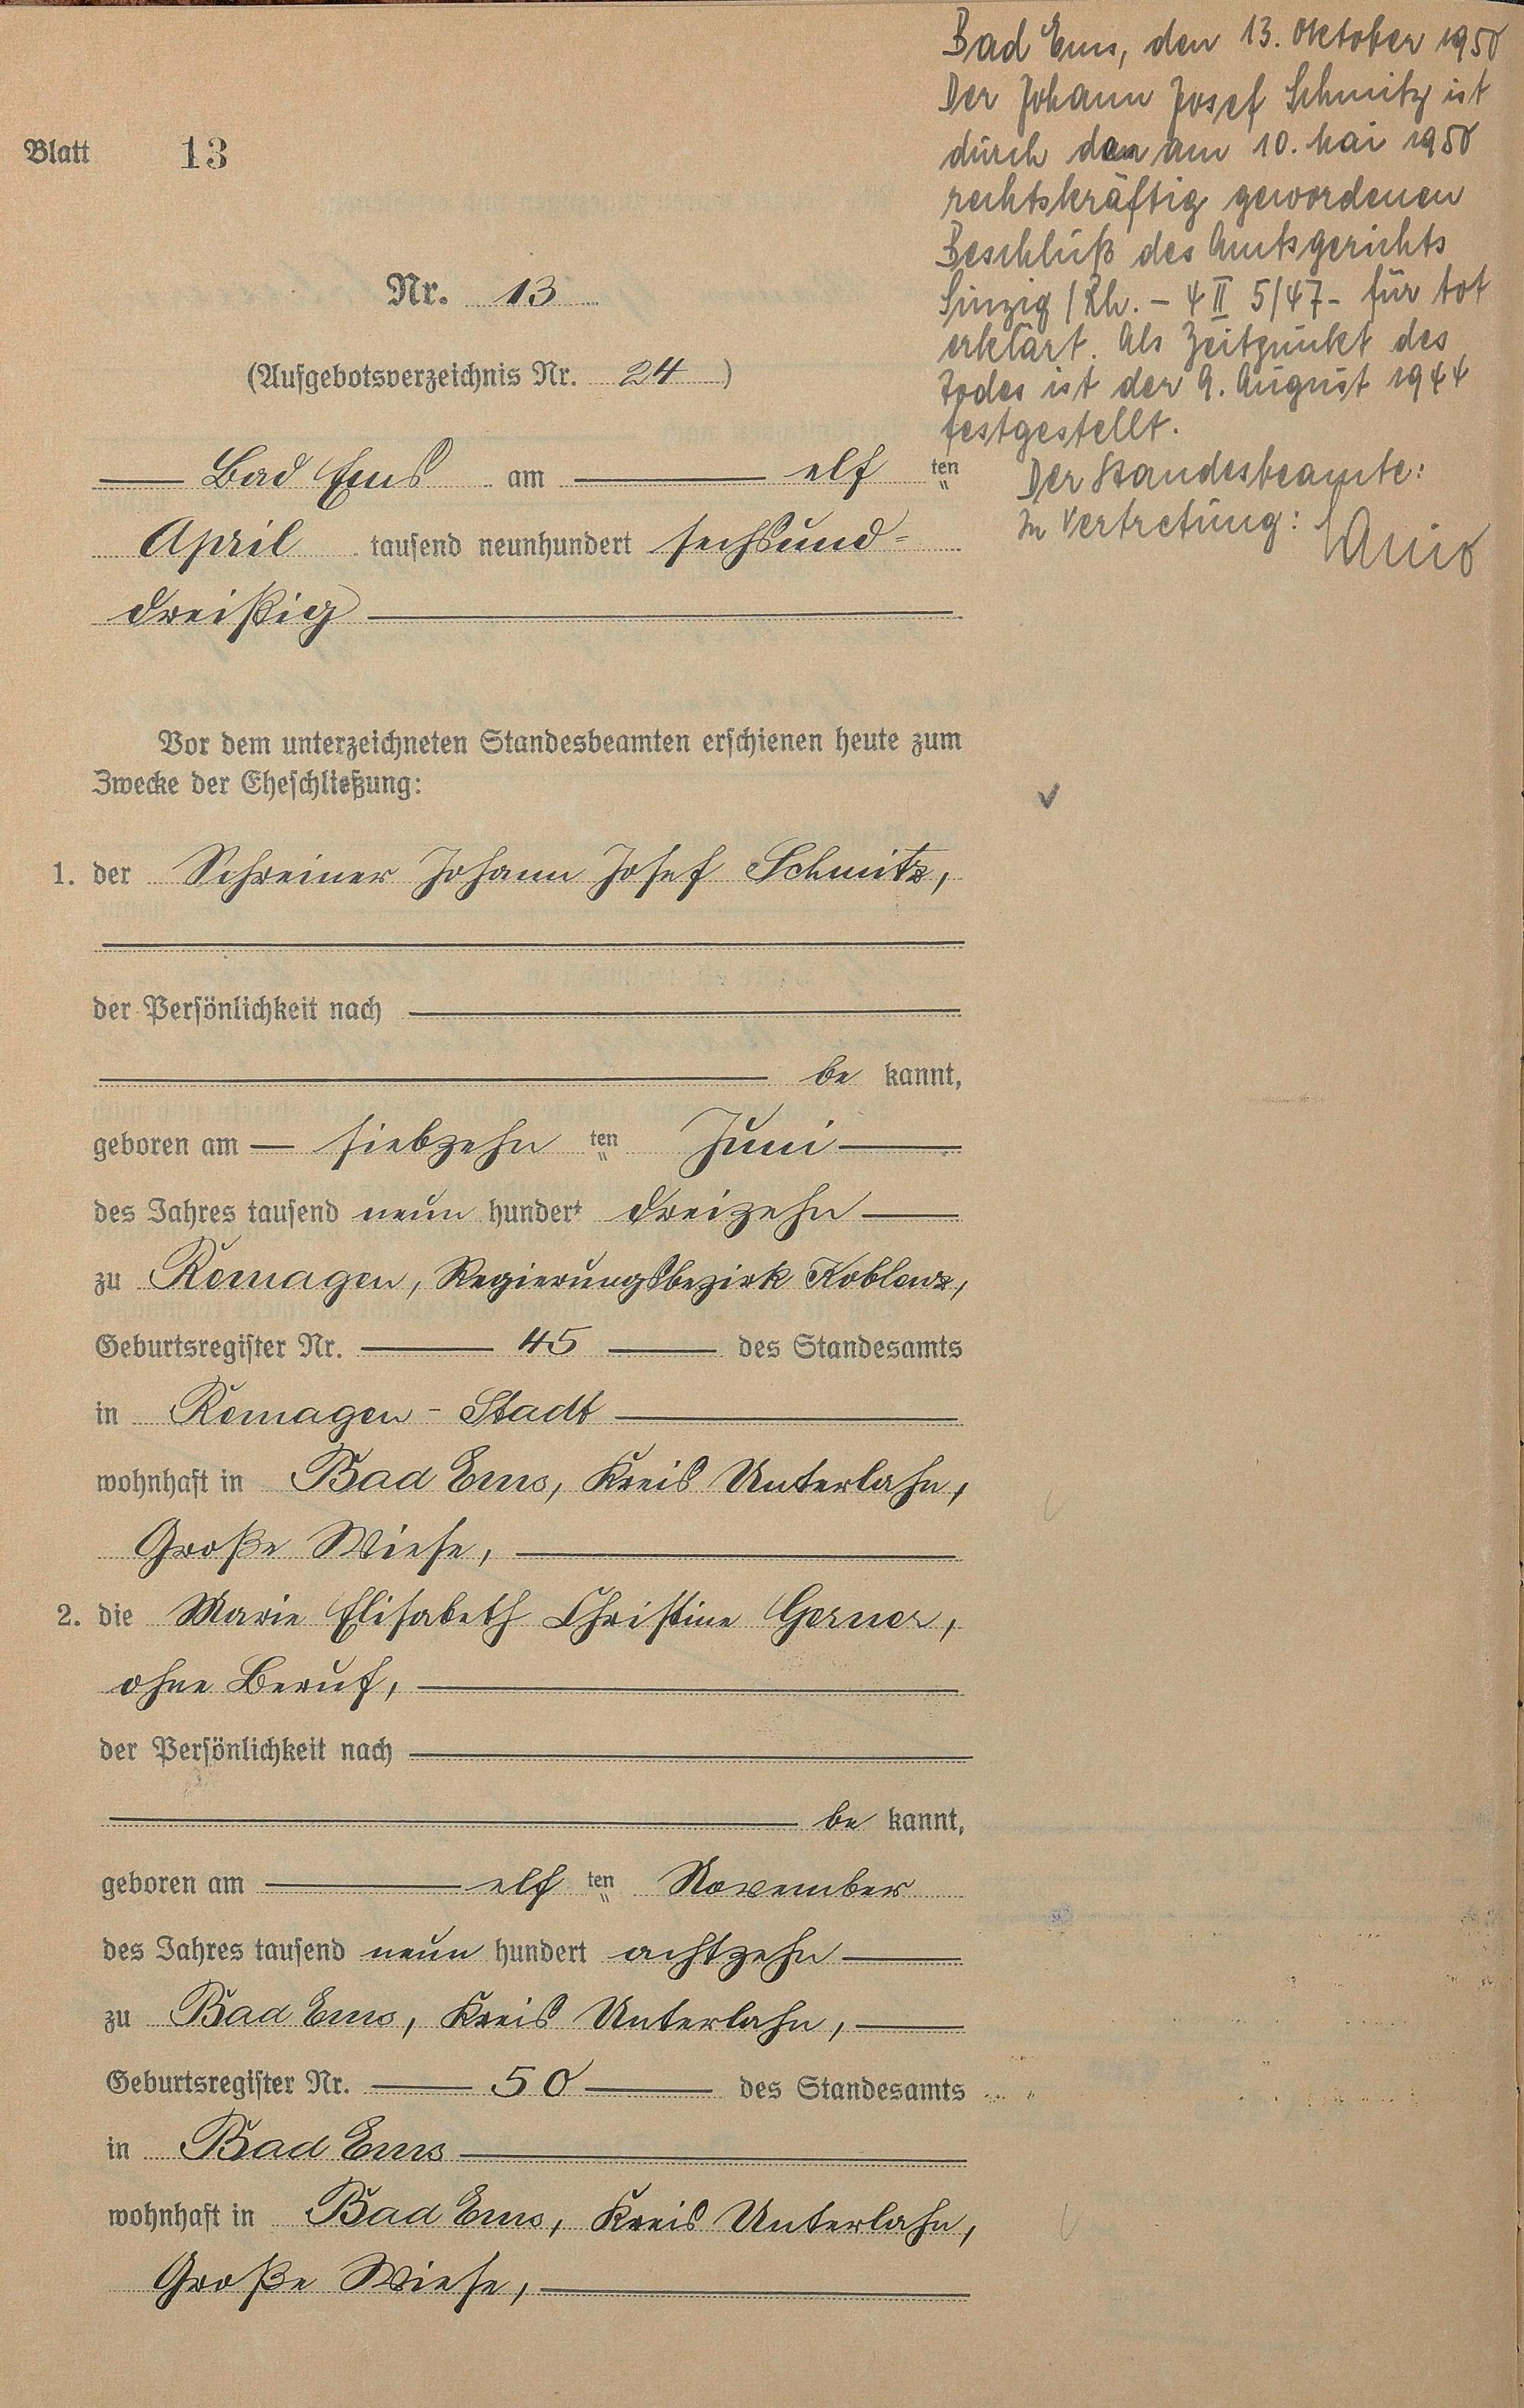 Blatt 13
Nr. 13
(Aufgebotsverzeichnis Nr. 24)
Bad Ems am elf ten
April tausend neunhundert sechsund=
dreißig
Vor dem unterzeichneten Standesbeamten erschienen heute zum
Zwecke der Eheschließung:
1. der Schreiner Johann Josef Schmitz,
der Persönlichkeit nach
be kannt,
geboren am siebzehn ten Juni
des Jahres tausend neun hundert dreizehn
zu Remagen, Regierungsbezirk Koblenz,
Geburtsregister Nr. 45 des Standesamts
in Remagen-Stadt
wohnhaft in Bad Ems, Kreis Unterlahn,
Große Wiese,
2. die Marie Elisabeth Christine Gerner,
ohne Beruf,
der Persönlichkeit nach
be kannt,
geboren am elf ten November
des Jahres tausend neun hundert achtzehn
zu Bad Ems, Kreis Unterlahn,
Geburtsregister Nr. 50 des Standesamts
in Bad Ems
wohnhaft in Bad Ems, Kreis Unterlahn,
Große Wiese,
Bad Ems, den 13. Oktober 1950
Der Johann Josef Schmitz ist
durch den am 10. Mai 1950
rechtskräftig gewordenen
Beschluß des Amtsgerichts
Sinzig/Rh. - 4 II 5/47 - für tot
erklärt. Als Zeitpunkt des
Todes ist der 9. August 1944
festgestellt.
Der Standesbeamte:
In Vertretung: